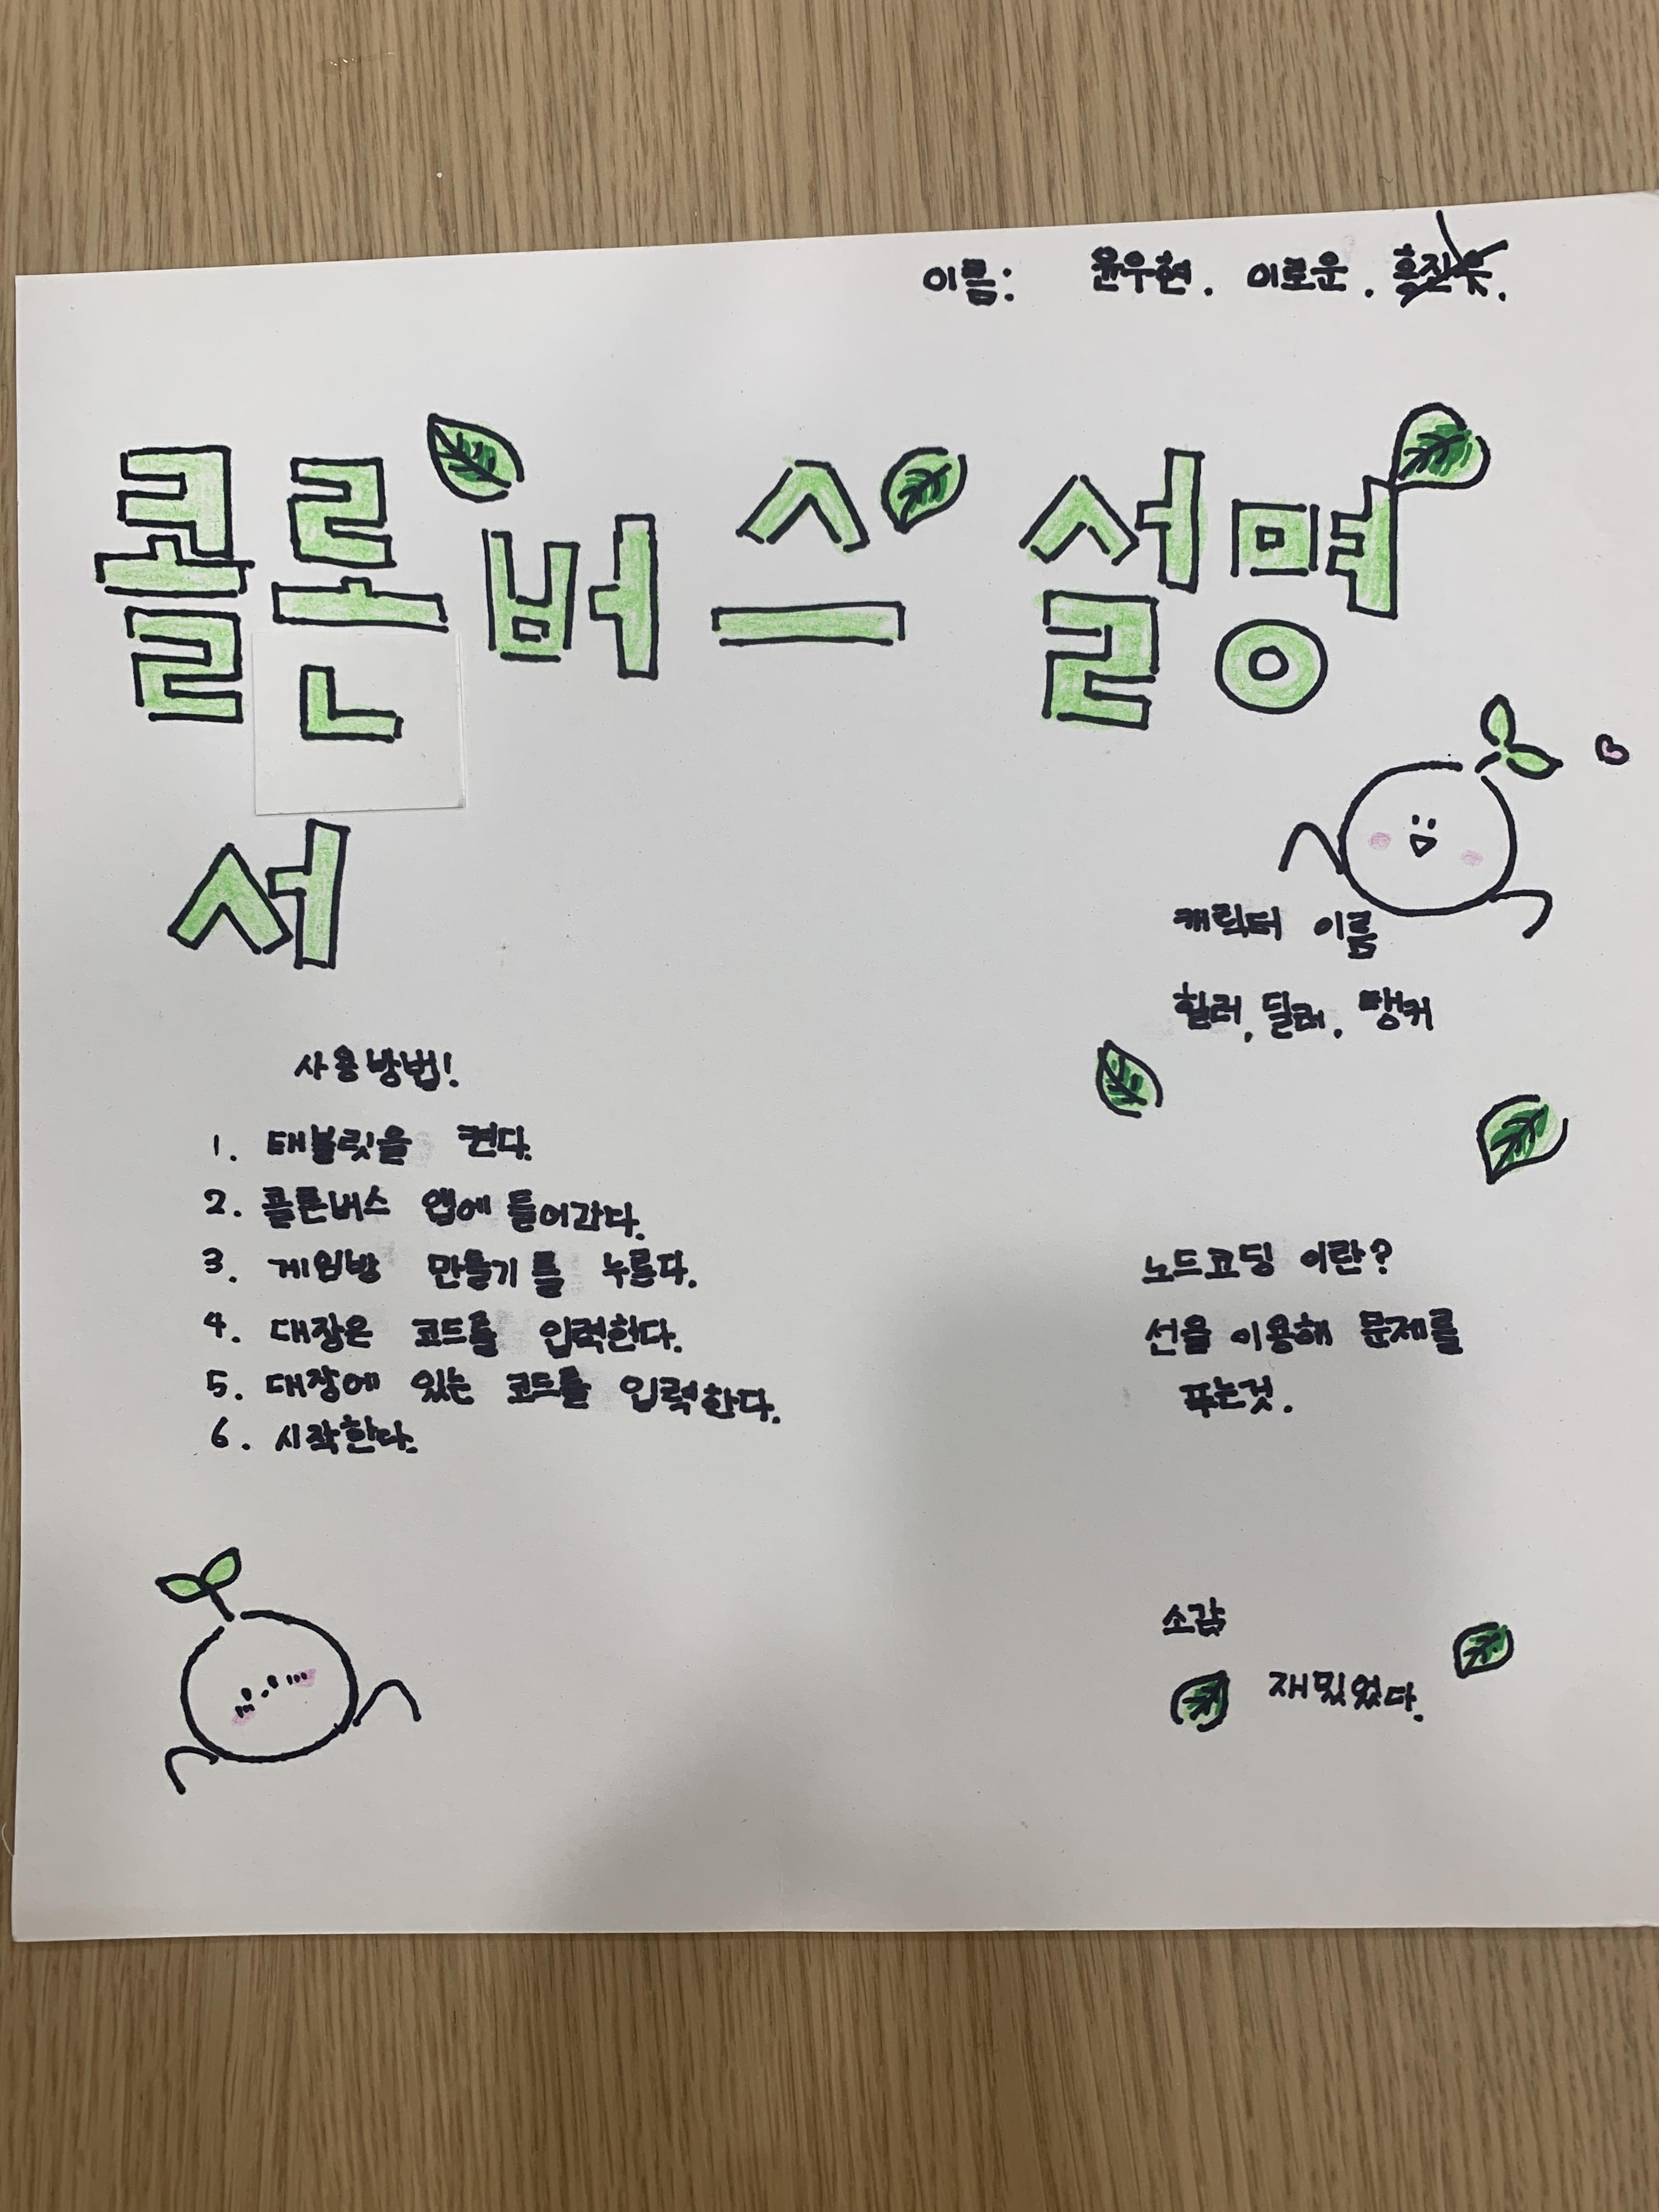 이름: 윤우현. 이로운.
콜론버스 설명
서
캐릭터 이름
힐러, 딜러, 땡커
사용방법!
1. 태블릿을 켠다.
2. 콜론버스 앱에 들어간다.
3. 게임방 만들기를 누른다.
4. 대장은 코드를 입력한다.
5. 대장에 있는 코드를 입력한다.
6. 시작한다.
노드코딩 이란?
선을 이용해 문제를
푸는것.
소감
재밌었다.